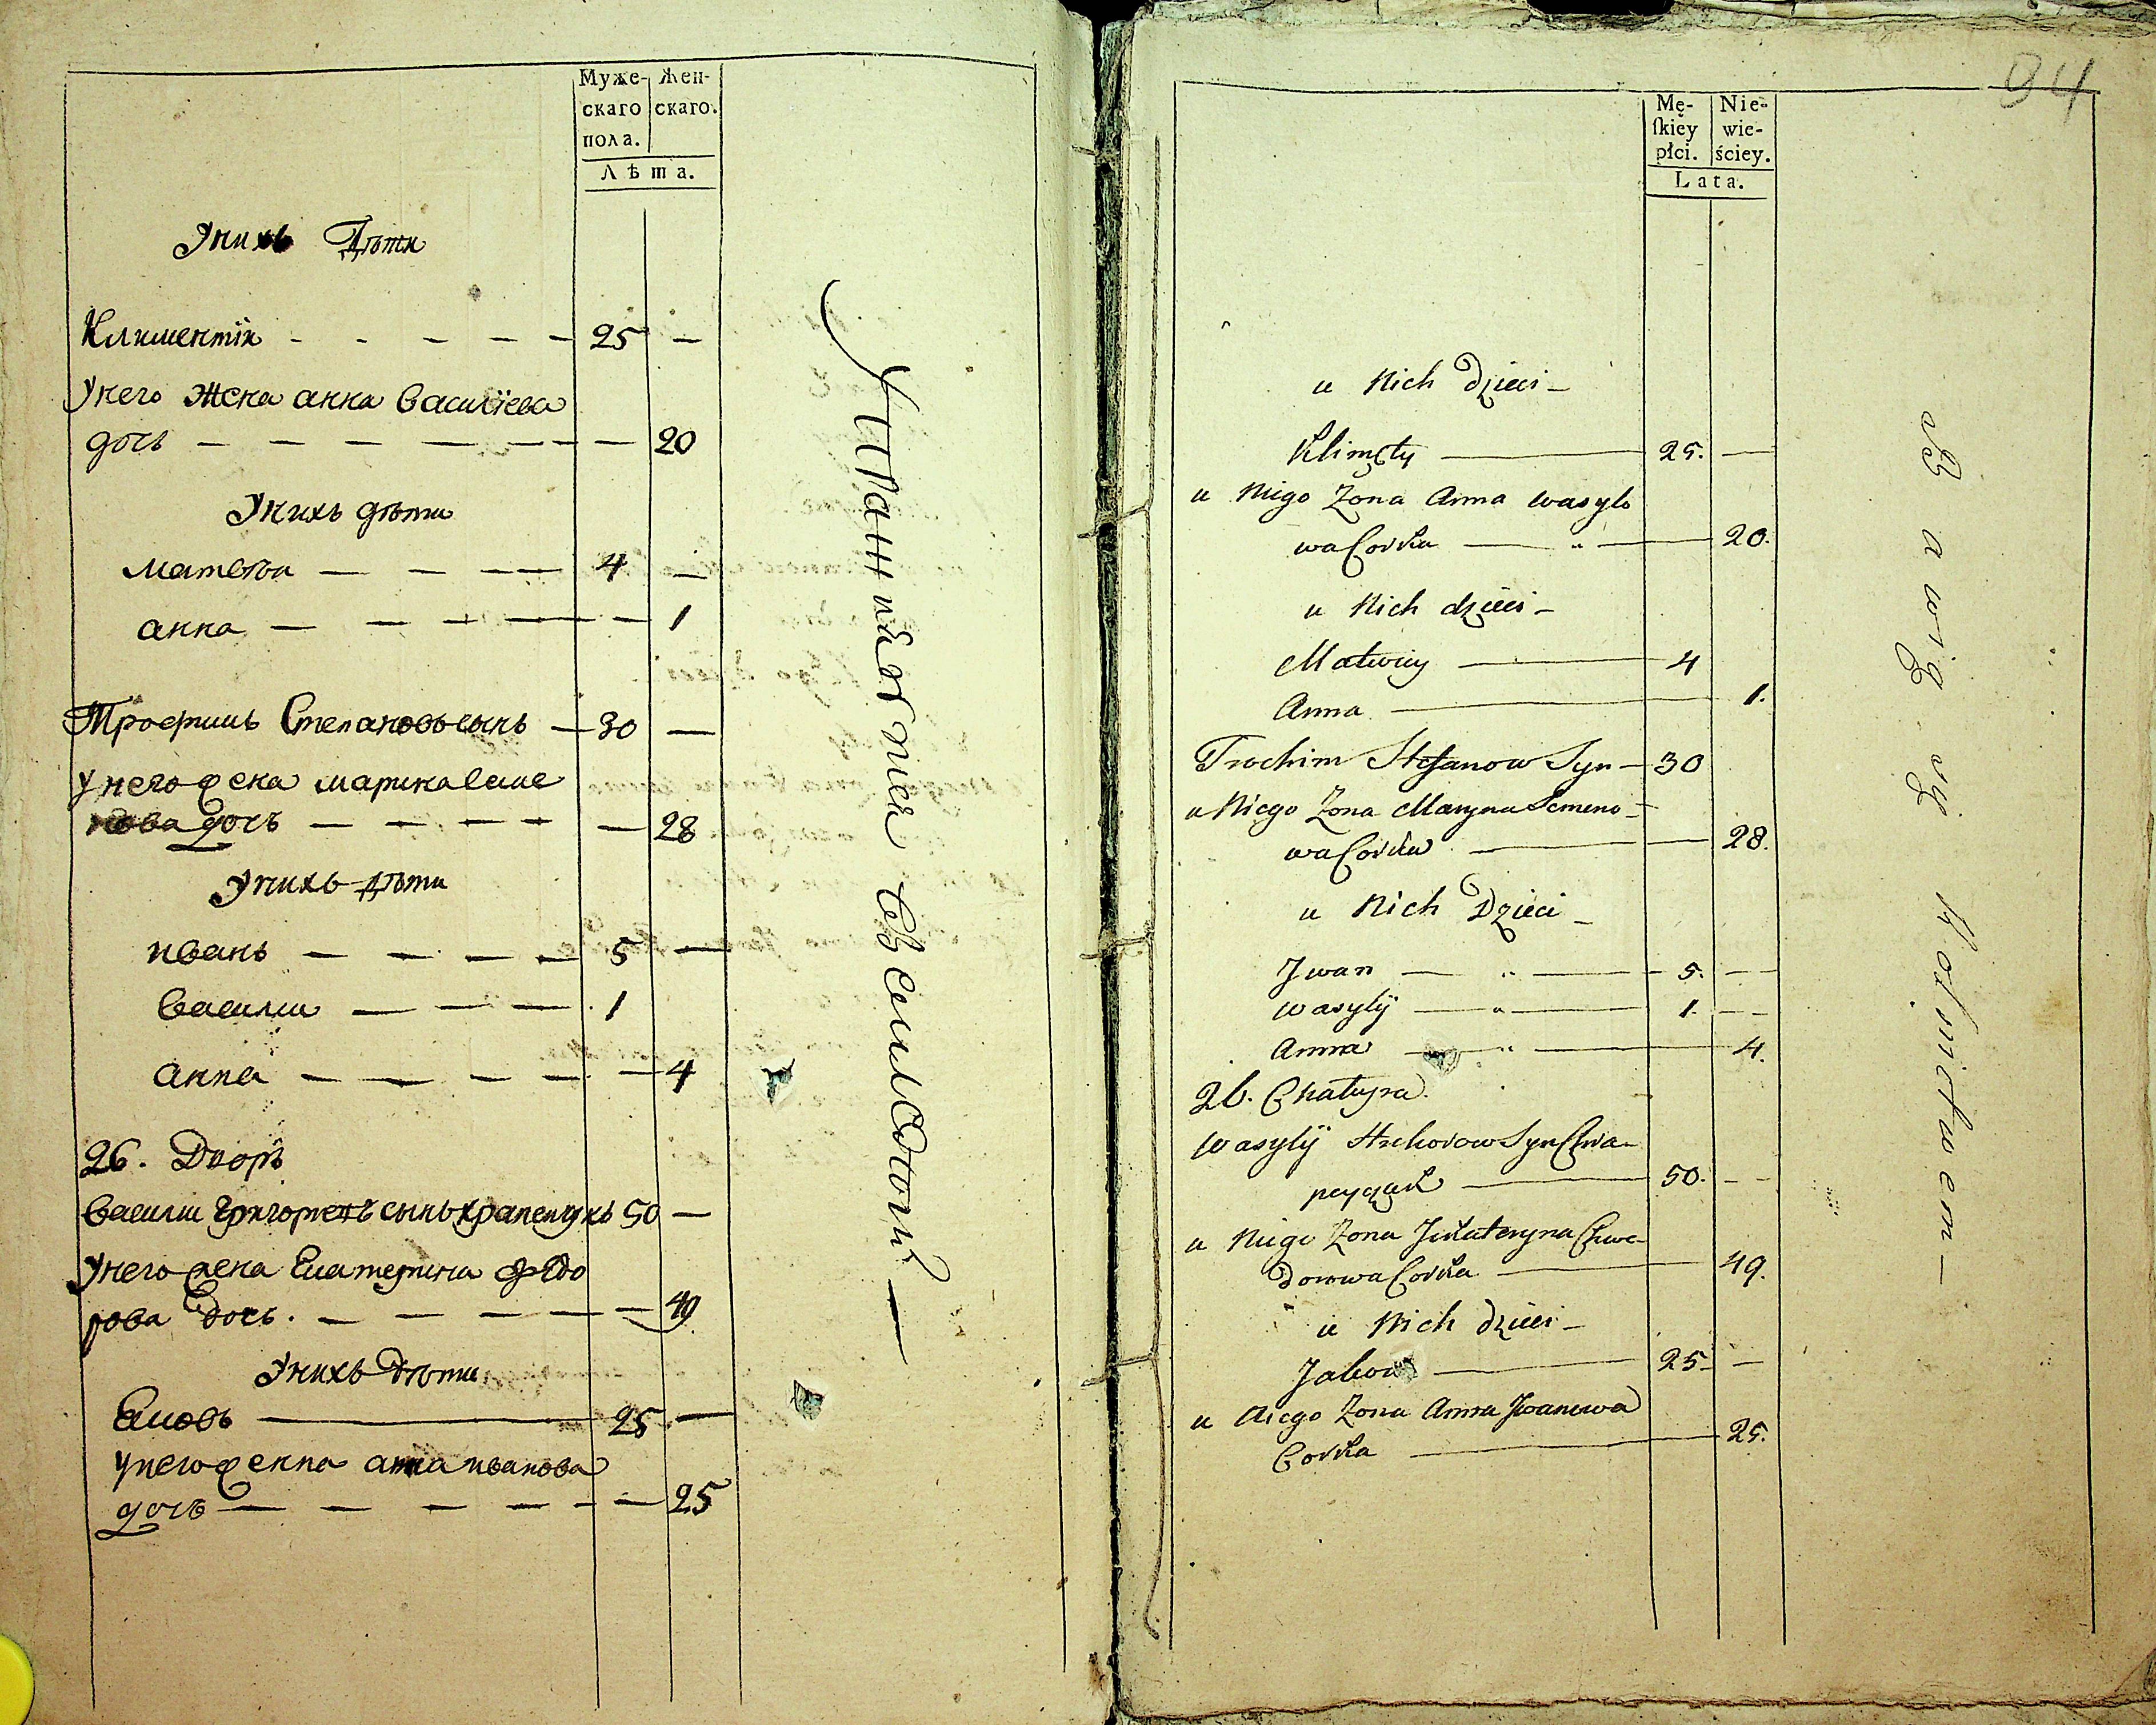 Муже- Жен-
скаго скаго.
пола.
Лѣта.
Унихъ Дѣти
Климентїи 25 —
Унего Жена анна Василїева
дочь — 20
Унихъ дѣти
матвѣи — 4 —
анна — 1
Трофимъ Степановъ сынъ — 30 —
Унего жена марина Семе
нова дочь — 28
Унихъ дѣти
иванъ — 5 —
василии — 1
анна — 4
26. Дворъ
василии Григорьевъ сынъ 50 —
Унего жена Екатерина Федо
рова дочь. — 49
Унихъ дѣти
Яковъ — 25 —
унего женна анна иванова
дочь — 25
94
Mę- Nie-
ſkiey wie-
płci. ściey.
Lata.
u Nich Dzieci —
Klimęty — 25. —
u Niego Żona Anna wasylo
wa Corka — 20.
u Nich dzieci —
Matwiy — 4
Anna — 1.
Trochim Stefanow Syn — 30
u Niego Żona Maryna Semeno —
wa Corka — 28.
u Nich Dzieci —
Jwan — 5. —
wasylÿ — 1. —
Anna — 4.
26. Chatupa
Wasylÿ Syn
50. —
u Niego Żona Jekateryna Chwe-
dorowa Corka — 49.
u Nich dzieci —
Jakow — 25 —
u Niego Żona Anna Jwanowa
Corka — 25.